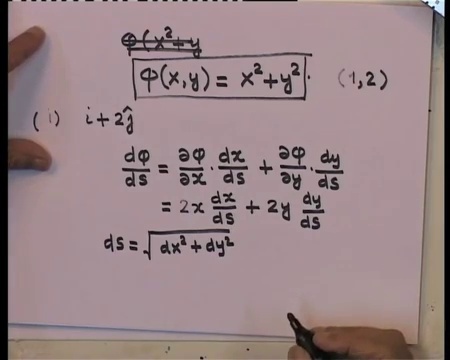 φ(x²+y
φ(x,y) = x²+y². (1,2)
(i) i+2ĵ
dφ/ds = ∂φ/∂x · dx/ds + ∂φ/∂y · dy/ds
= 2x dx/ds + 2y dy/ds
ds = √(dx²+dy²)